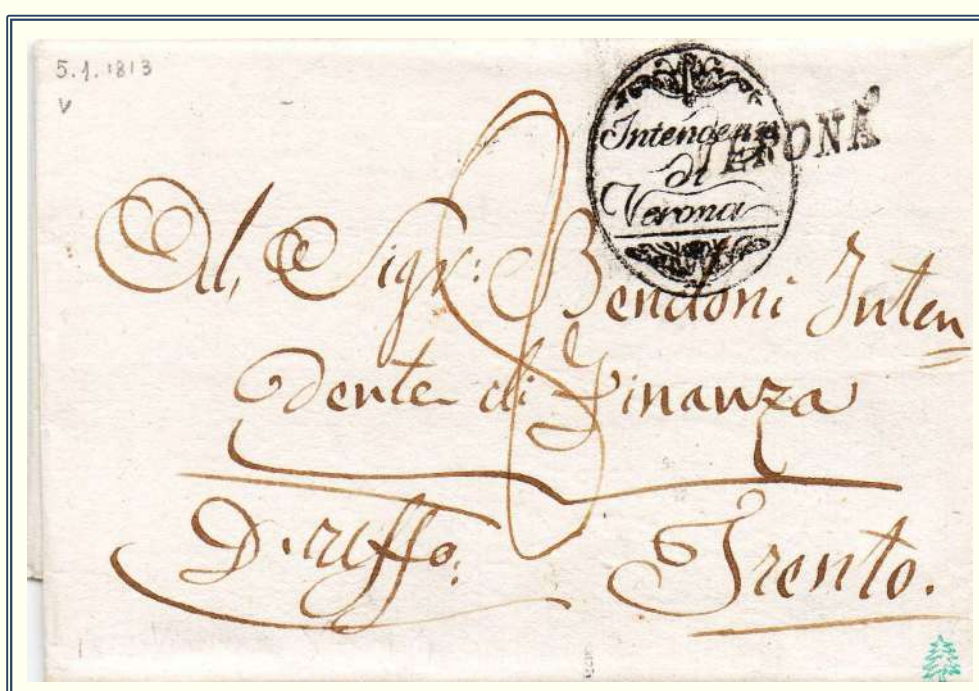 5.1.1813
V
Intendenza
di
Verona
VERONA
Al, Sigr: Bendoni Inten
dente di Finanza
D'Uffo: Trento.